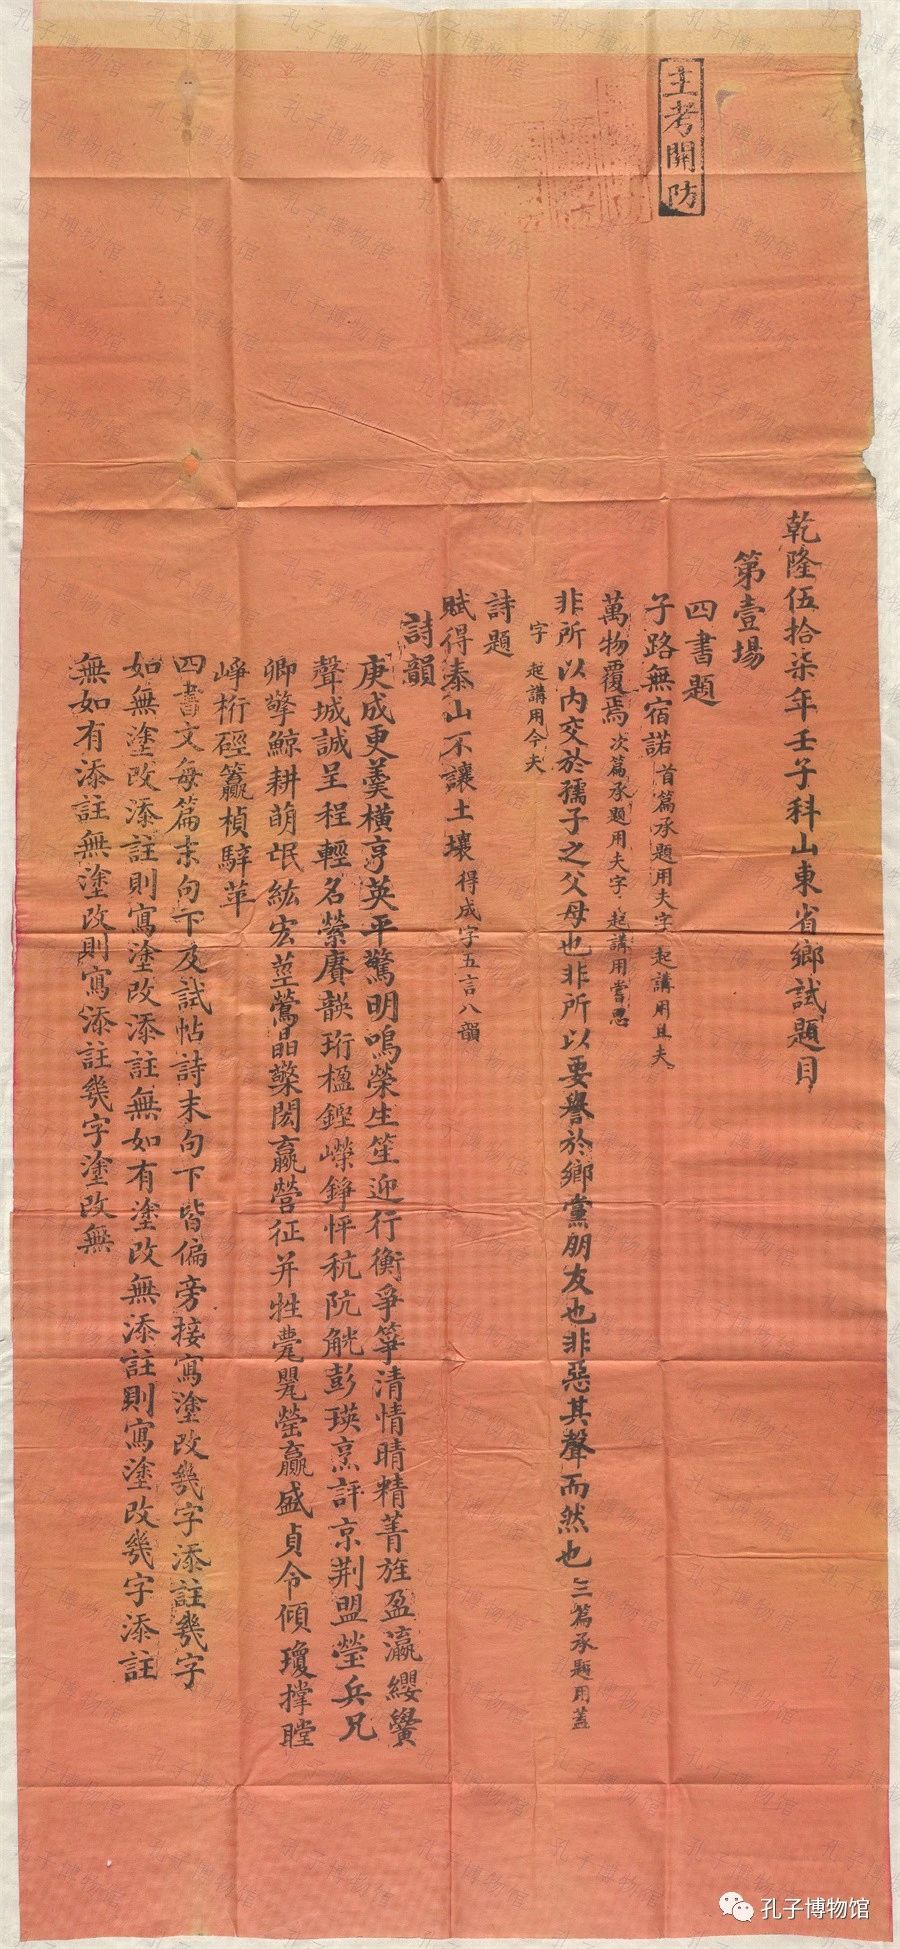 主考關防
乾隆伍拾柒年壬子科山東省鄉試題目
第壹場
四書題
子路無宿諾 首篇承題用夫字 起講用且夫
萬物覆焉 次篇承題用夫字 起講用嘗思
非所以內交於孺子之父母也非所以要譽於鄉黨朋友也非惡其聲而然也 三篇承題用蓋
字 起講用今夫
詩題
賦得泰山不讓土壤 得成字五言八韻
詩韻
庚成更羹橫亨英平驚明鳴榮生笙迎行衡爭箏清情晴精菁旌盈瀛纓黌
聲城誠呈程輕名縈賡韺珩楹鏗嶸錚怦秔阬觥彭瑛烹評京荆盟瑩兵兄
卿擎鯨耕萌氓紘宏莖鶯晶檠閎嬴營征并牲甍甖塋贏盛貞令傾瓊撑瞠
崢桁硜籯楨騂苹
四書文每篇末句下及試帖詩末句下皆偏旁接寫塗改幾字添註幾字
如無塗改添註則寫塗改添註無如有塗改無添註則寫塗改幾字添註
無如有添註無塗改則寫添註幾字塗改無
孔子博物馆